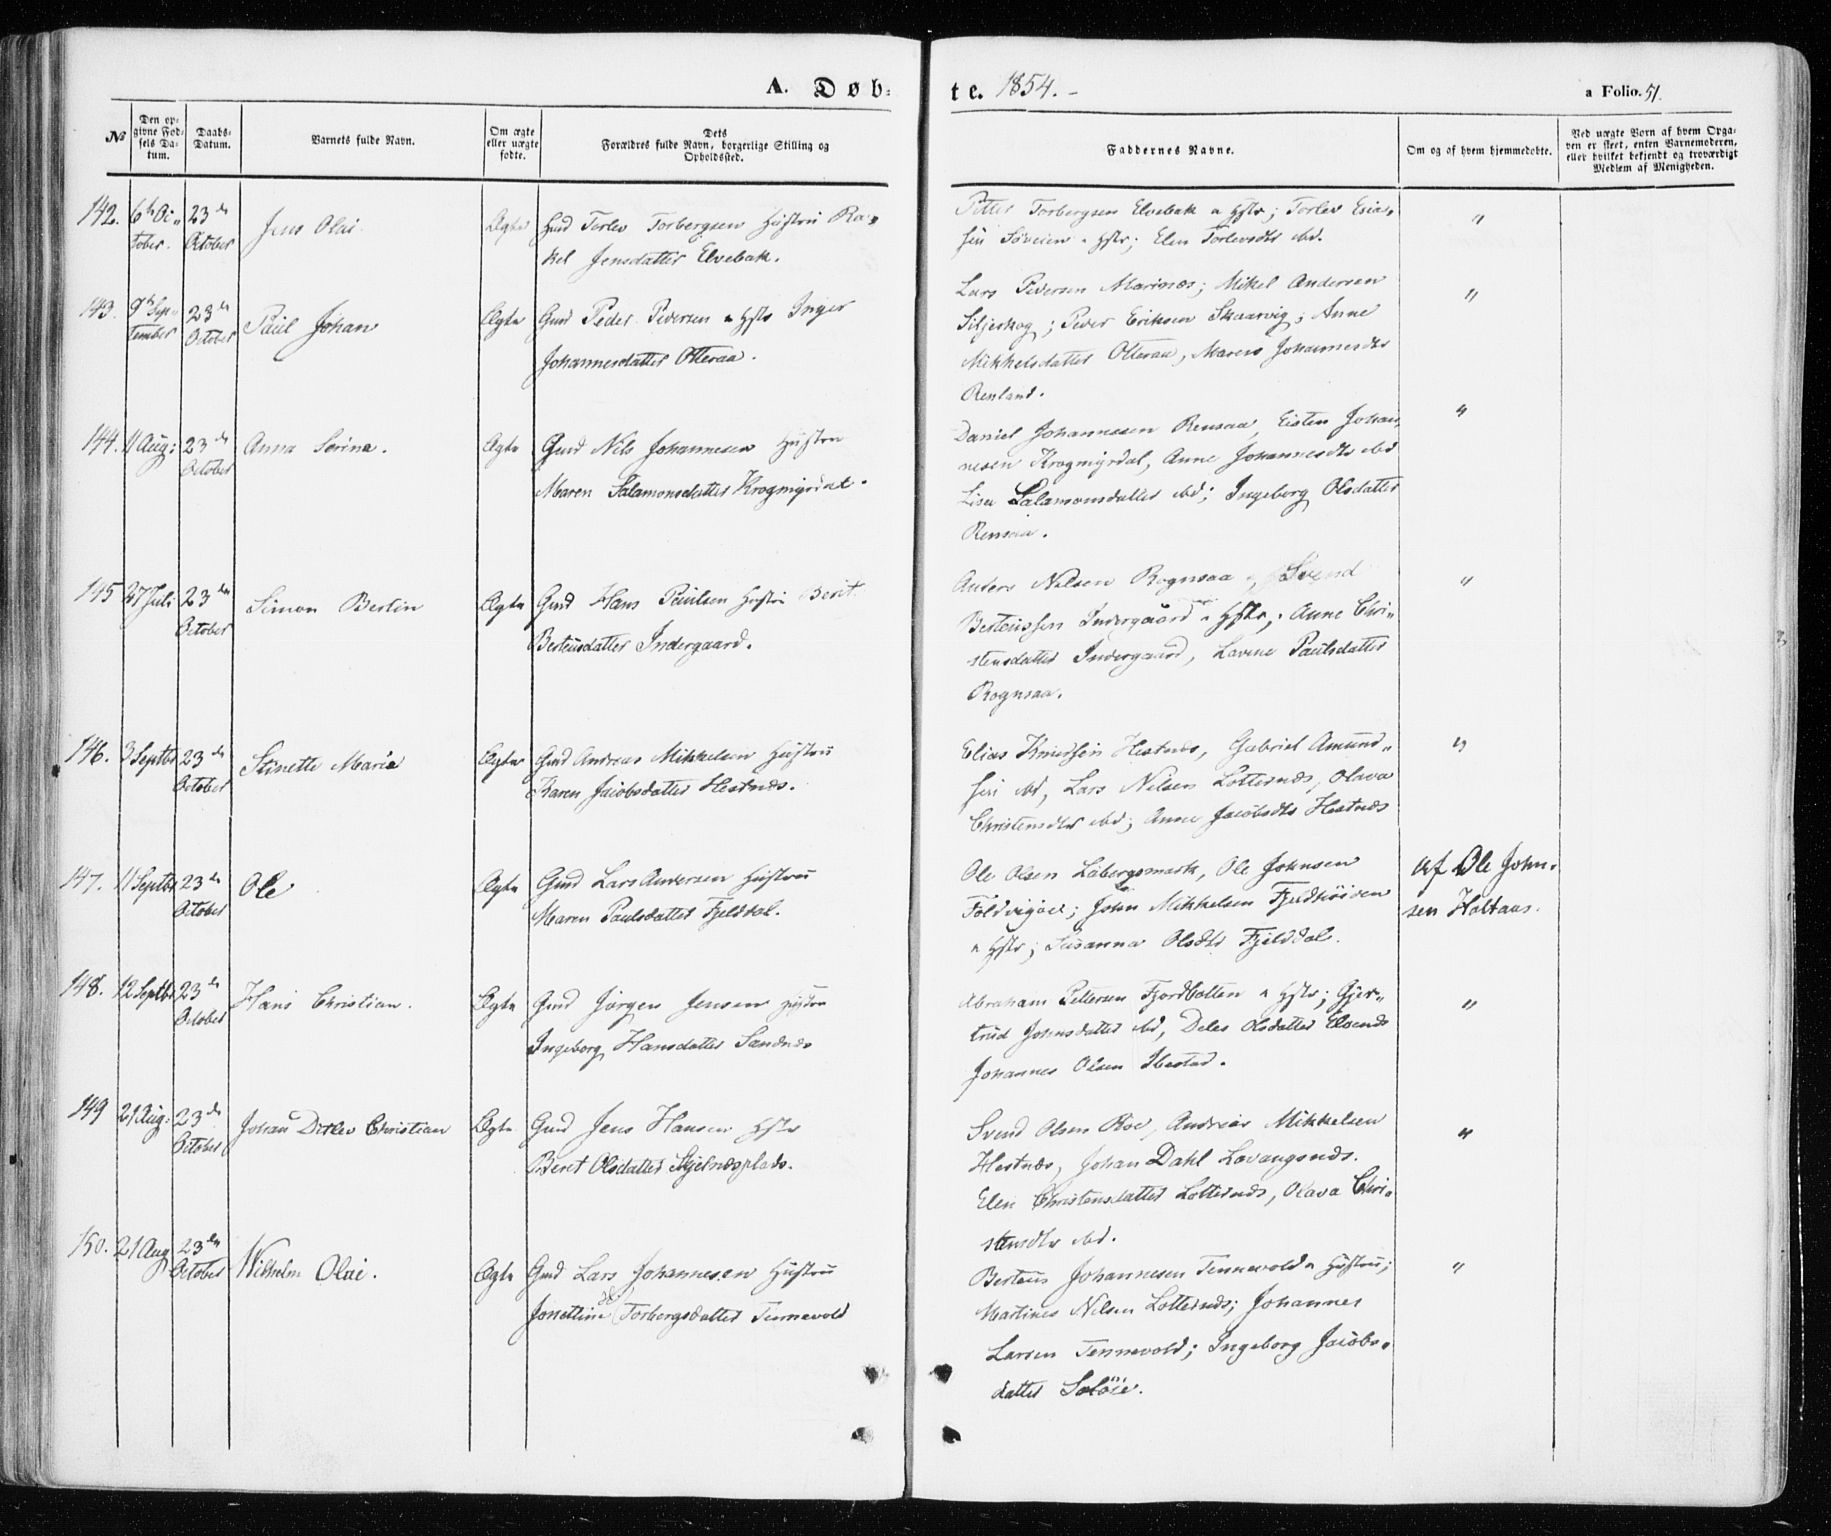 A. Døb-
te. 1854.-
a Folio. 51.
№
Den op-
givne Fød-
sels Da-
tum.
Daabs-
Datum.
Barnets fulde Navn.
Om ægte
eller uægte
fødte.
Dets
Forældres fulde Navn, borgerlige Stilling og
Opholdssted.
Faddernes Navne.
Om og af hvem hjemmedøbte.
Ved uægte Børn af hvem Opga-
ven er skeet, enten Barnemoderen,
eller hvilket bekjendt og troværdigt
Medlem af Menigheden.
142. 6te Oc- 23de Jens Olai. Ægte Gmd Torlev Torbergsen Hustru Ra-
tober. October kel Jensdatter Elvebak.
Petter Torbergsen Elvebak " Hstr; Torlev Esia- "
sen Søveien " Hstr; Elen Torlevsdtr ibd.
143. 9de Sep- 23de Paul Johan Ægte Gmd Peder Pedersen " Hstr Inger
tember October Johannesdatter Otteraa.
Lars Pedersen Marines; Mikel Andersen "
Siljeskog; Peder Eriksen Skaarvig; Anne
Mikkelsdatter Otteraa, Maren Johannesdtr
Renland.
144. 11 Aug: 23de Anna Serina. Ægte Gmd Nils Johannesen Hustru
October Maren Salamonsdatter Krogmyrdal.
Daniel Johannesen Rensaa, Eisten Johan- "
nesen Krogmyrdal, Anne Johannesdtr ibd
Lisa Salamonsdatter ibd; Ingeborg Olsdatter
Rensaa.
145 27 Juli 23de Simon Bertin Ægte Gmd Hans Paulsen Hustru Berit
October Berteusdatter Indergaard.
Anders Nilsen Rognsaa, Svend "
Berteussen Indergaard " Hstr; Anne Chri-
stensdatter Indergaard, Lavine Paulsdatter
Rognsaa.
146. 3 Septbr 23de Stinette Maria Ægte Gmd Andreas Mikkelsen Hustru
October Karen Jacobsdatter Hestnæs.
Elias Knudsen Hestnæs, Gabriel Amund- "
sen ibd, Lars Nilsen Lotternæs, Olava
Christensdtr ibd; Anne Jacobsdtr Hestnæs
147. 11 Septbr 23de Ole Ægte Gmd Lars Andersen Hustru
October Maren Paulsdatter Fjelddal.
Ole Olsen Løbergsmark, Ole Johnsen af Ole John-
Foldvigøie; John Mikkelsen Fjeldkøiven sen Holtaas.
" Hstr; Susanna Olsdtr Fjelddal.
148. 12 Septbr 23de Hans Christian. Ægte Gmd Jørgen Jensen Hustru
October Ingeborg Hansdatter Sandnæs
Abraham Pettersen Fjordbotten " Hstr; Gjer- "
trud Johnsdatter ibd, Deles Olsdatter Elvenæs
Johannes Olsen Ibestad.
149 21 Aug: 23de Johan Ditlev Christian Ægte Gmd Jens Hansen Hstr
October Berit Olsdatter Skjelnæsplads.
Svend Olsen Roe, Andreas Mikkelsen "
Hestnæs, Johan Dahl Lavangsnæs.
Elen Christensdatter Lotternæs, Olava Chri-
stensdtr ibd.
150. 21 Aug 23de Wilhelm Olai. Ægte Gmd Lars Johannesen Hustru
October Jonettine Torbergsdatter Tennevold
Berteus Johannesen Tennevold " Hustru; "
Martines Nilsen Lotternæs; Johannes
Larsen Tennevold; Ingeborg Jacobs-
datter Soløie.